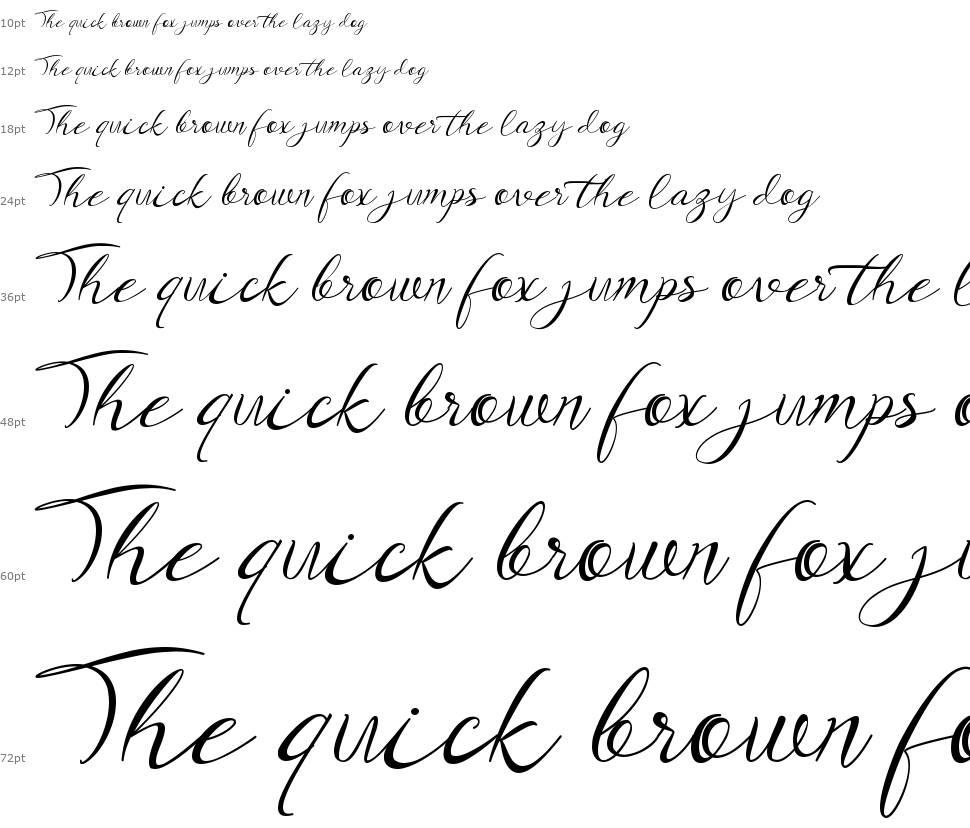 10pt The quick brown fox jumps over the lazy dog
12pt The quick brown fox jumps over the lazy dog
18pt The quick brown fox jumps over the lazy dog
24pt The quick brown fox jumps over the lazy dog
36pt The quick brown fox jumps over the l
48pt The quick brown fox jumps o
60pt The quick brown fox ju
72pt The quick brown fo